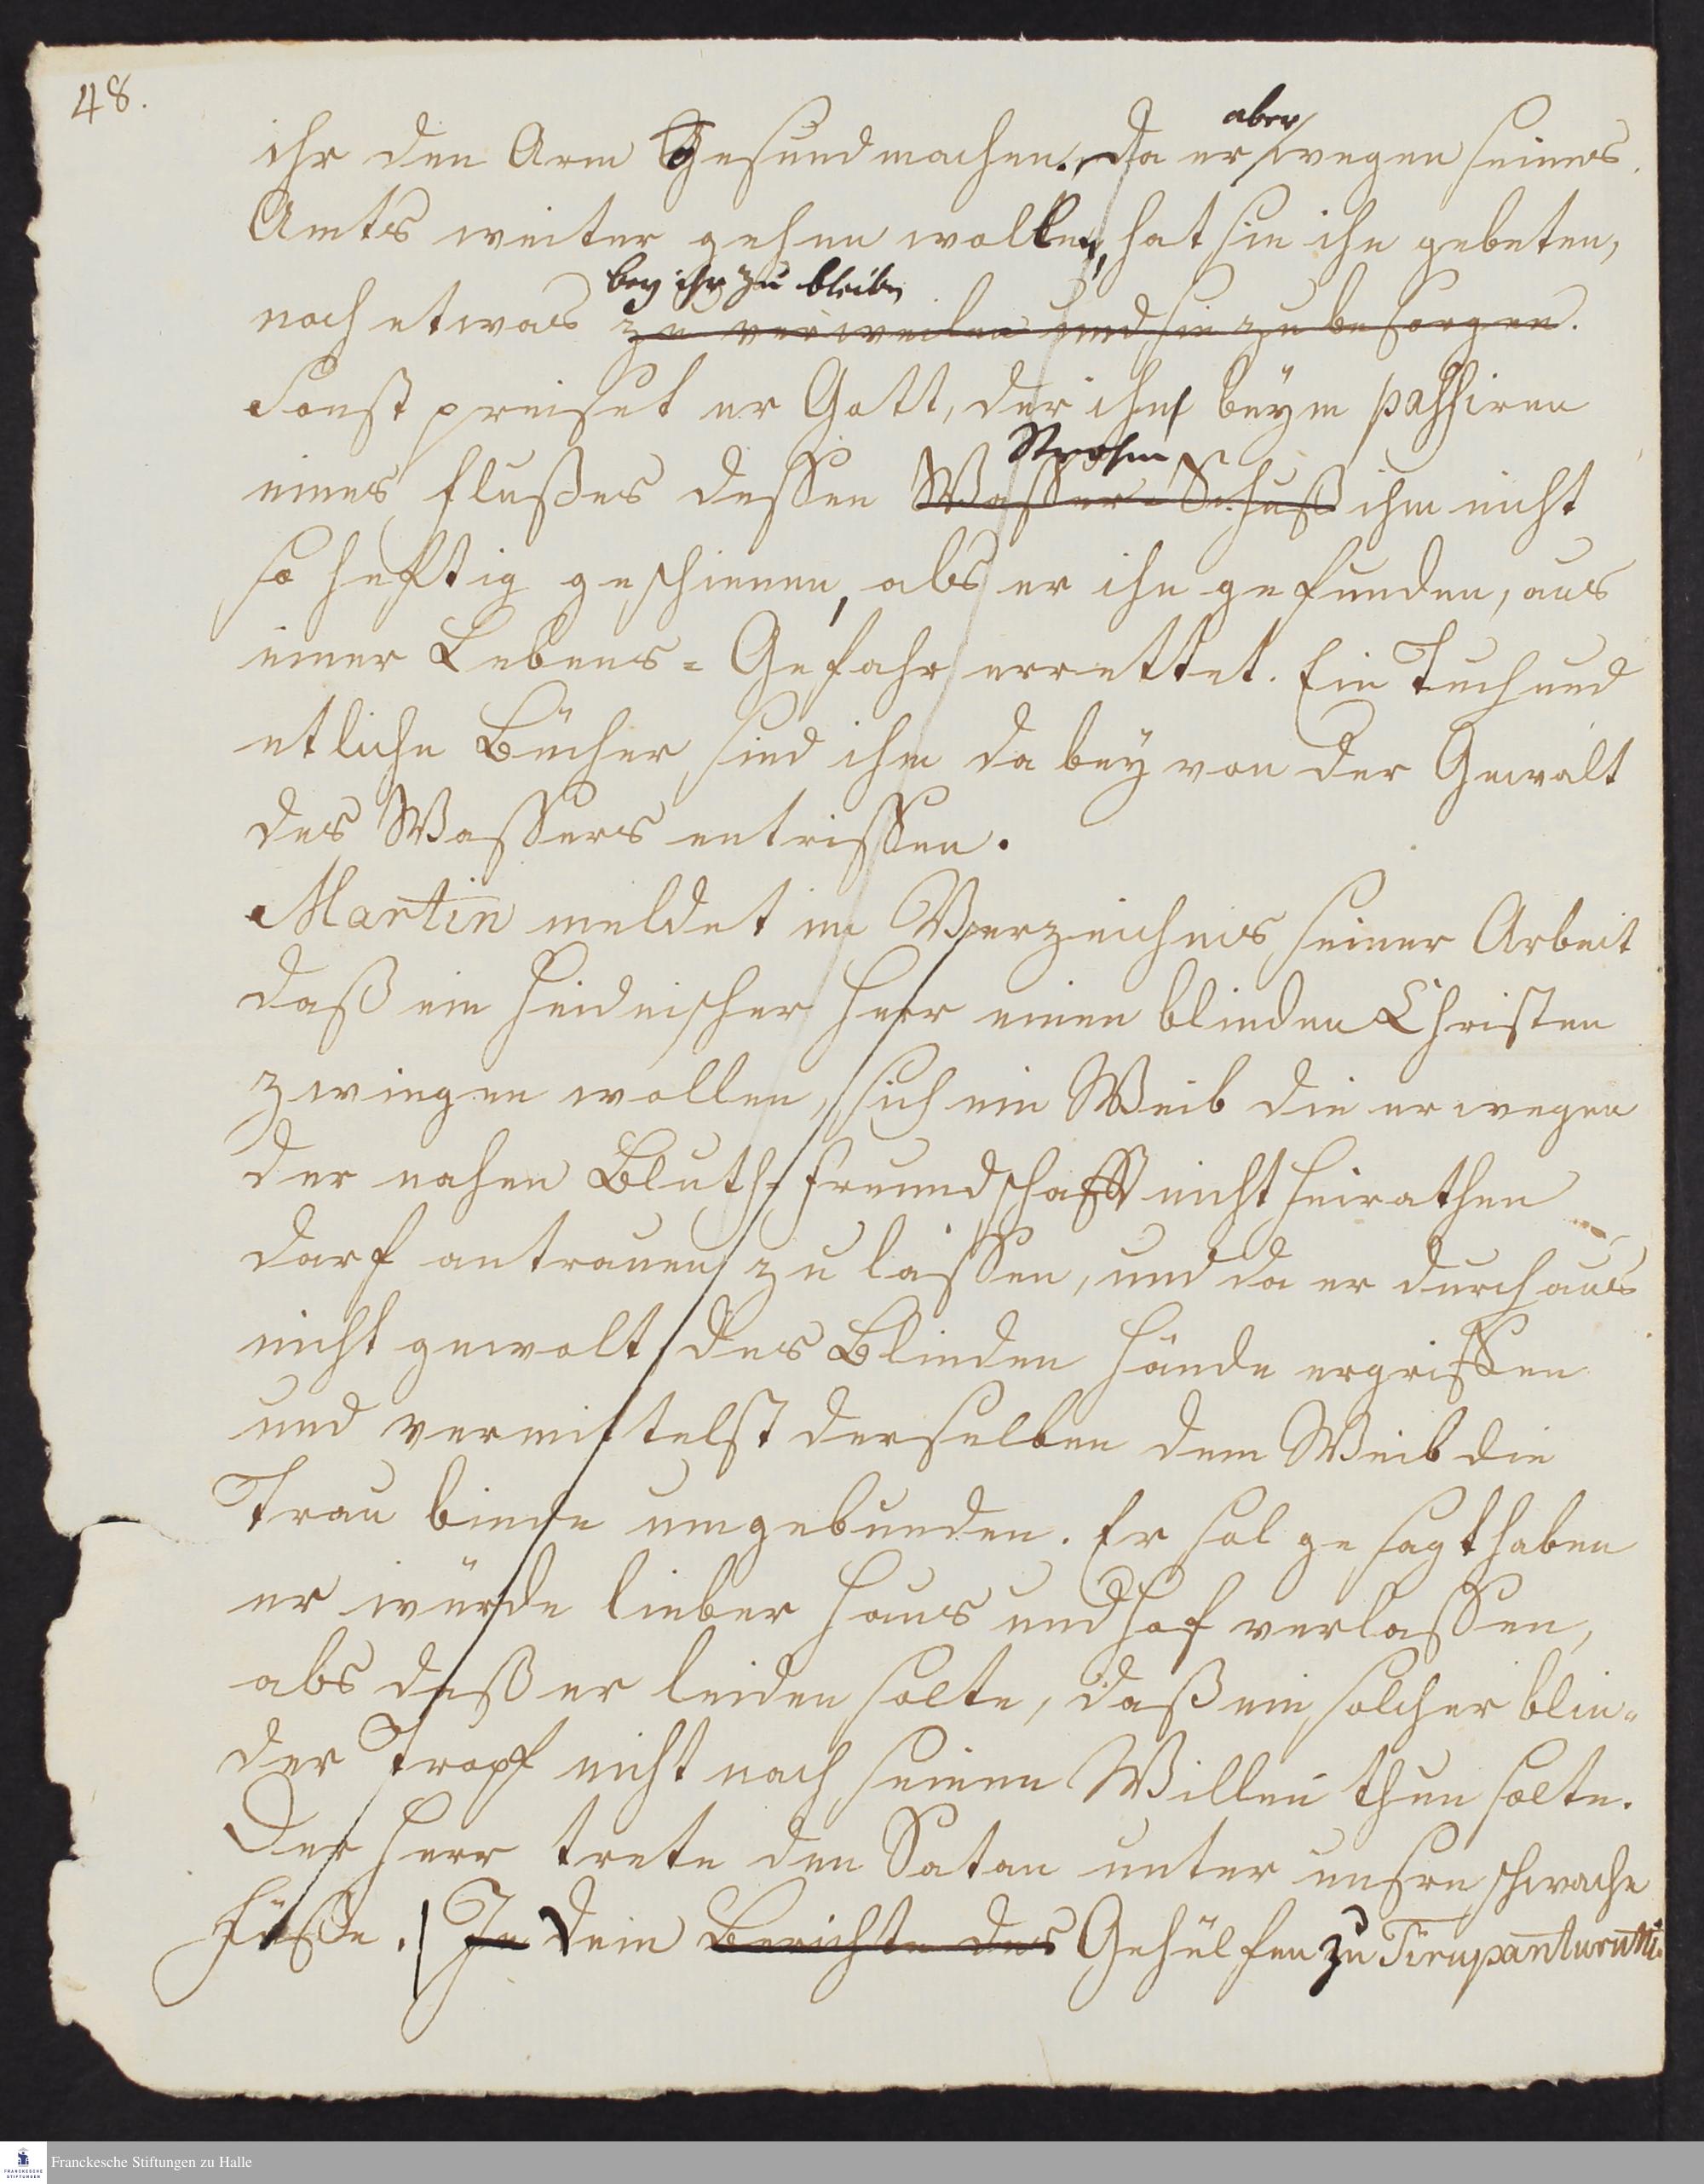 48.
ihr den Arm Gesund machen. Da er aber wegen seines
Amts weiter gehen wollen, hat sie ihn gebeten,
bey ihr zu bleiben
noch etwas zu verweilen und sie zu besorgen.
Sonst preiset er Gott, der ihn beym passiren
Strohm
eines Flußes dessen Wasser-Schuß ihm nicht
so heftig geschienen, als er ihn gefunden, aus
einer Lebens-Gefahr errettet. Ein Tuch und
etliche Bücher sind ihm dabey von der Gewalt
des Wassers entrissen.
Martin meldet im Verzeichnis seiner Arbeit
daß ein Heidnischer Herr einen blinden Christen
zwingen wollen, sich ein Weib die er wegen
der nahen Bluth-Freundschafft nicht Heirathen
darf antrauen zu lassen, und da er durchaus
nicht gewolt des Blinden Hände ergriffen
und vermittelst derselben dem Weib die
Trau binde umgebunden. Er sol gesagt haben
er würde lieber Haus und Hof verlassen,
als daß er leiden solte, daß ein solcher blin-
der Tropf nicht nach seinem Willen thun solte.
Der Herr trete den Satan unter unsre schwache
Füße. In dem Berichte des Gehülfen zu Tirupanturutti
Franckesche Stiftungen zu Halle